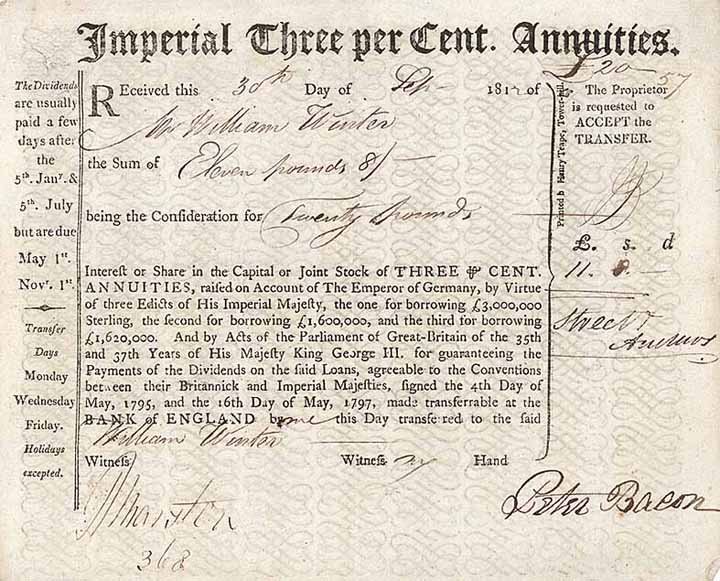 Imperial Three per Cent. Annuities.
£20
57
The Dividends
are usually
paid a few
days after
the
5th. Jany. &
5th. July
but are due
May 1st.
Novr. 1st.
Transfer
Days
Monday
Wednesday
Friday.
Holidays
excepted.
REceived this 30th Day of Sep 1812 of
Mr William Winter
the Sum of Eleven pounds 8/-
being the Consideration for Twenty pounds
Interest or Share in the Capital or Joint Stock of THREE ⅌ CENT.
ANNUITIES, raised on Account of The Emperor of Germany, by Virtue
of three Edicts of His Imperial Majesty, the one for borrowing £3,000,000
Sterling, the second for borrowing £1,600,000, and the third for borrowing
£1,620,000. And by Acts of the Parliament of Great-Britain of the 35th
and 37th Years of His Majesty King George III. for guaranteeing the
Payments of the Dividends on the said Loans, agreeable to the Conventions
between their Britannick and Imperial Majesties, signed the 4th Day of
May, 1795, and the 16th Day of May, 1797, made transferrable at the
BANK of ENGLAND by me this Day transferred to the said
William Winter
Witness Witness my Hand
368
Peter Bacon
Printed by Henry Teape, Tower-hill.
The Proprietor
is requested to
ACCEPT the
TRANSFER.
£. s. d
11. 8. —
Andrews